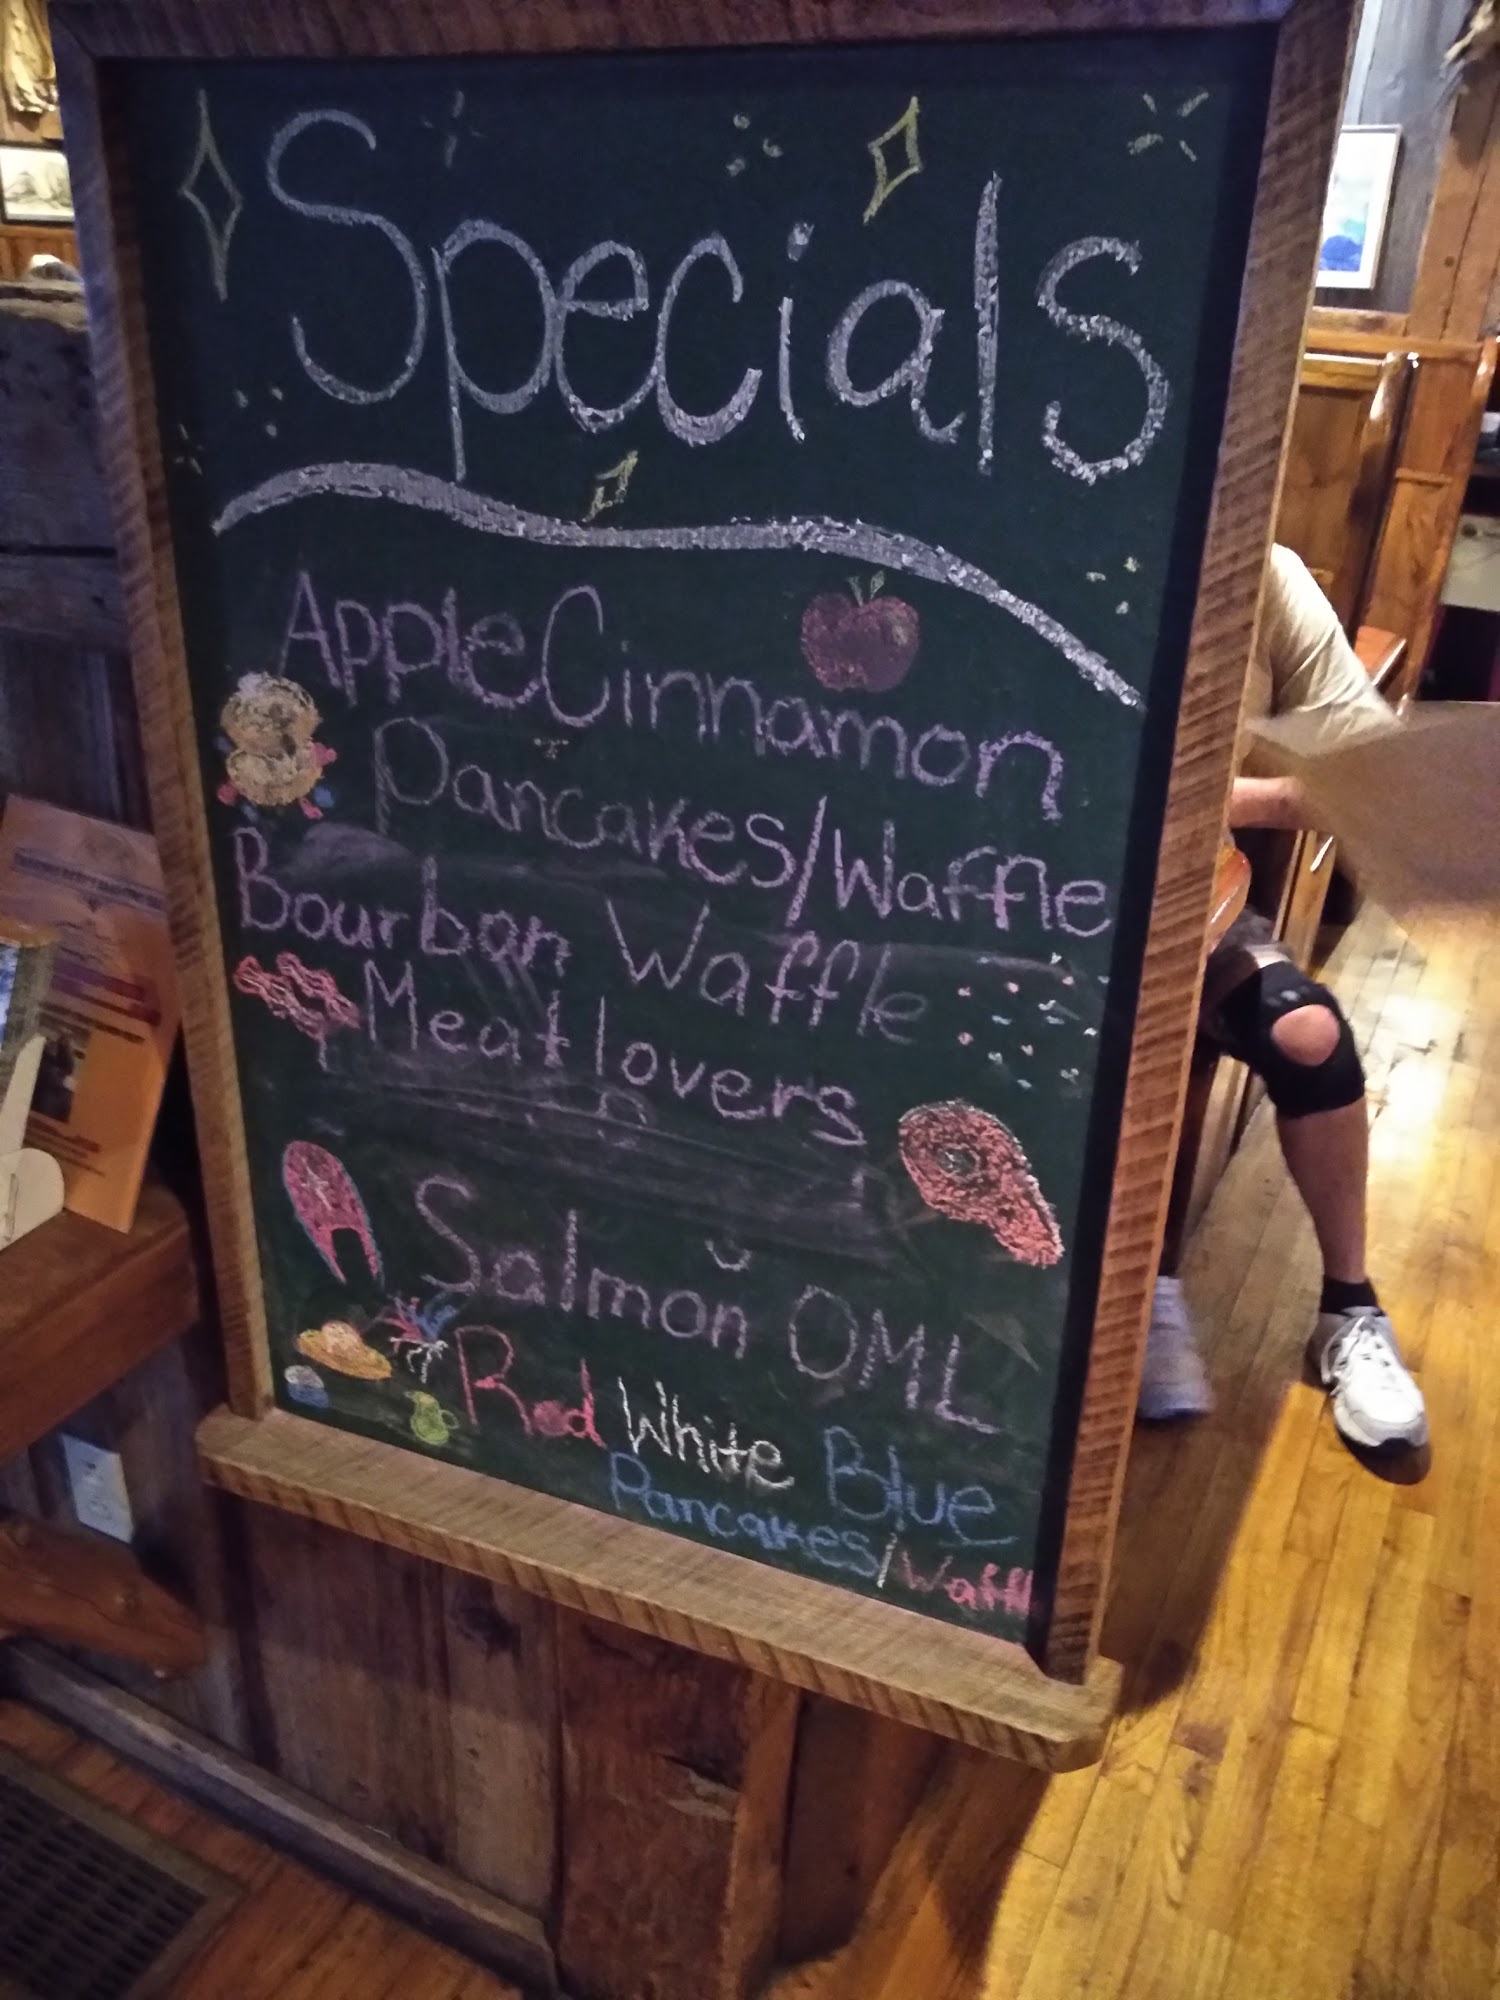 Specials
Apple Cinnamon
Pancakes/Waffle
Bourbon Waffle
Meat lovers
Salmon OML
Red White Blue
Pancakes/Waffl